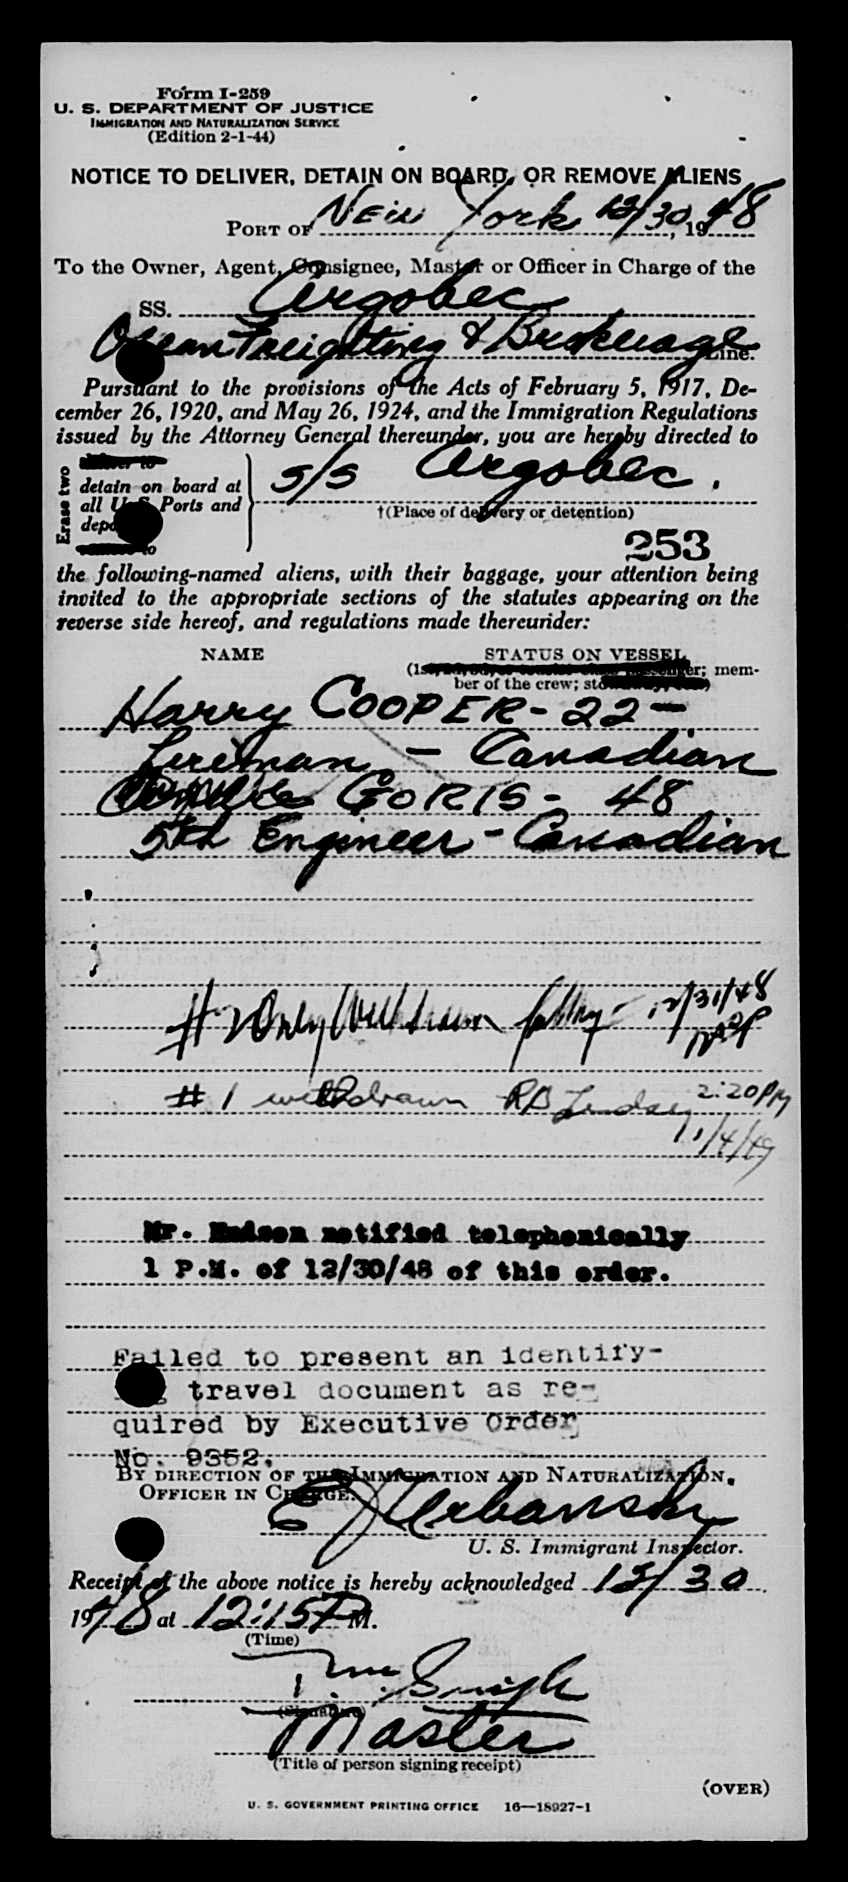 Form I-259
U. S. DEPARTMENT OF JUSTICE
IMMIGRATION AND NATURALIZATION SERVICE
(Edition 2-1-44)
NOTICE TO DELIVER, DETAIN ON BOARD, OR REMOVE ALIENS
PORT OF New York 12/30, 1948
To the Owner, Agent, Consignee, Master or Officer in Charge of the
SS. Argobec
Ocean Freighting & Brokerage Line.
Pursuant to the provisions of the Acts of February 5, 1917, De-
cember 26, 1920, and May 26, 1924, and the Immigration Regulations
issued by the Attorney General thereunder, you are hereby directed to
Erase two
detain on board at
all U. S. Ports and
S/S Argobec.
†(Place of delivery or detention)
253
the following-named aliens, with their baggage, your attention being
invited to the appropriate sections of the statutes appearing on the
reverse side hereof, and regulations made thereunder:
NAME STATUS ON VESSEL
mem-
ber of the crew;
Harry COOPER - 22 -
Fireman - Canadian
GORIS - 48
5th Engineer - Canadian
#2 Only Withdrawn 12/31/48
#1 withdrawn RB Lindsay 2:20 PM
1/4/49
Mr. Hudson notified telephonically
1 P.M. of 12/30/48 of this order.
Failed to present an identify-
travel document as re-
quired by Executive Order
No. 9352.
BY DIRECTION OF THE IMMIGRATION AND NATURALIZATION
OFFICER IN CHARGE.
E J Urbanski
U. S. Immigrant Inspector.
Receipt of the above notice is hereby acknowledged 12/30
1948 at 12:15 P M.
(Time)
(Signature)
Master
(Title of person signing receipt)
(OVER)
U. S. GOVERNMENT PRINTING OFFICE 16—18927-1